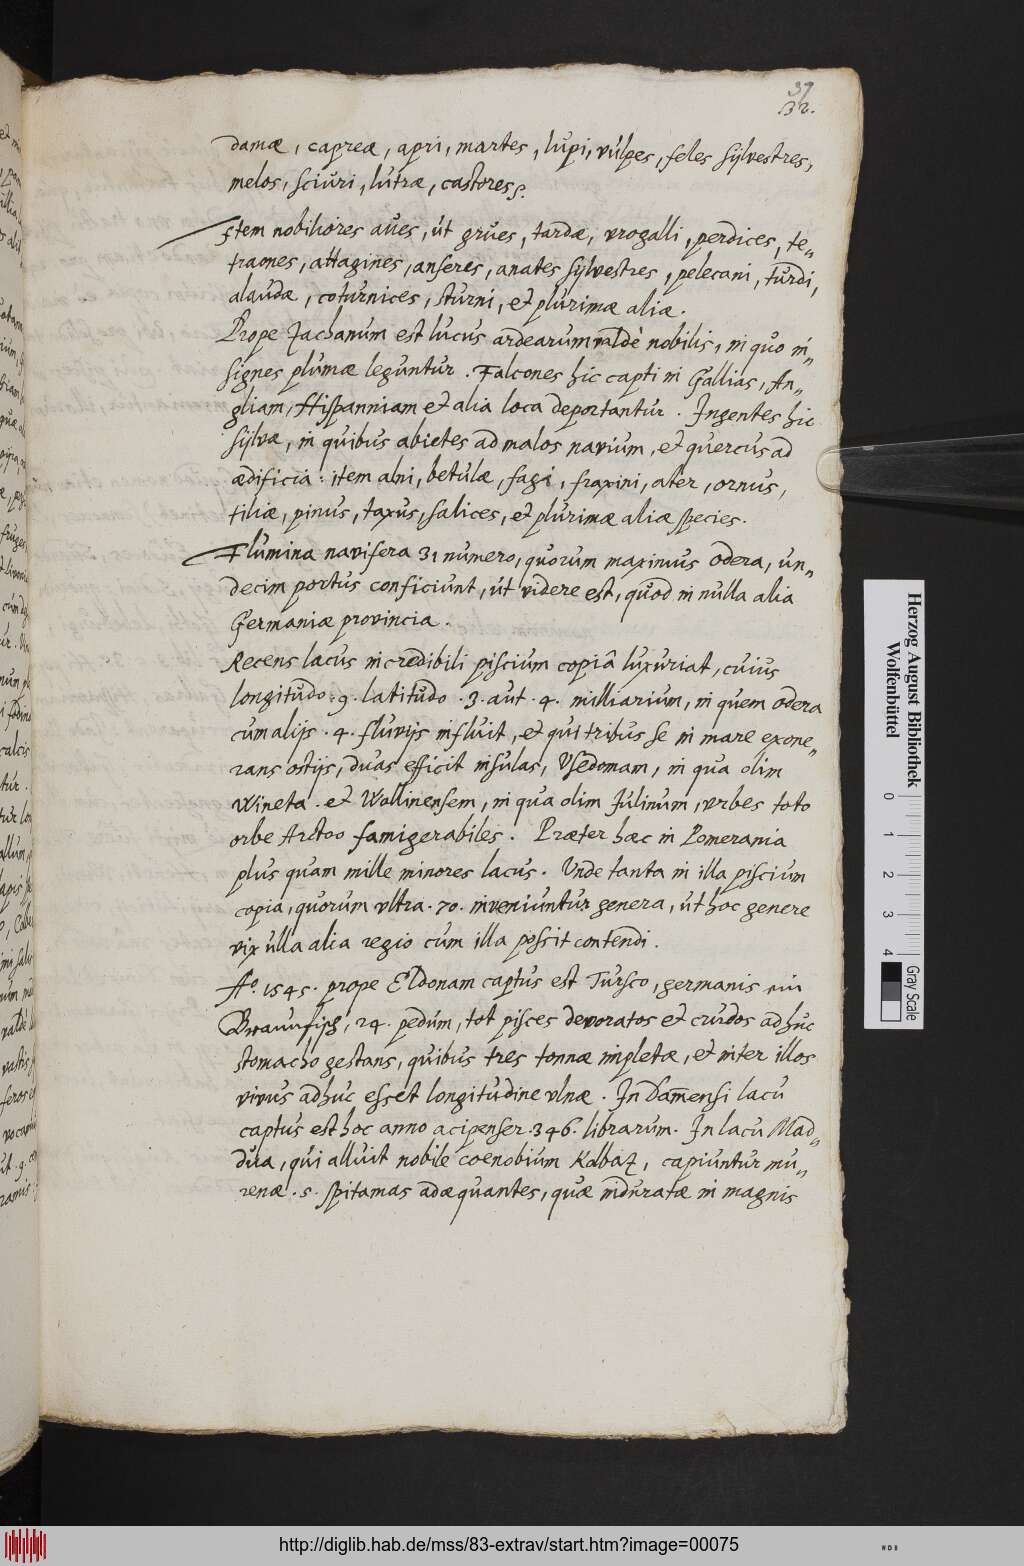 37
32.
damæ, capreæ, apri, martes, lupi, vúlpes, feles sÿlvestres,
melos, sciúri, lutræ, castores.
Item nobiliores aúes, út grúes, tardæ, vrogalli, perdices, te„
traones, attagines, anseres, anates sÿlvestres, pelecani, túrdi,
alaudæ, cotúrnices, stúrni, et plúrimæ aliæ.
Prope Zachanum est lucus ardearum valdè nobilis, in quo in„
signes plumæ leguntur. Falcones hic capti in Gallias, An„
gliam, Hispanniam et alia loca deportantur. Ingentes hic
sÿlvæ, in quibus abietes ad malos navium, et quercus ad
ædificia: item alni, betulæ, fagi, fraxini, ater, ornus,
tiliæ, pinus, taxus, salices, et plurimæ aliæ species.
Flumina navifera 31 numero, quorum maximus Odera, un„
decim portus conficiunt, út videre est, quod in nulla alia
Germaniæ provincia.
Recens lacus incredibili piscium copiâ luxuriat, cuius
longitudo .9. latitudo .3. aut .4. milliarium, in quem Odera
cum alijs .4. fluvijs influit, et qui tribus se in mare exone„
rans ostijs, duas efficit insulas, Vsedomam, in qua olim
Wineta. et Wollinensem, in qua olim Júlinum, vrbes toto
orbe Arctoo famigerabiles. Præter hæc in Pomerania
plus quam mille minores lacus. Unde tanta in illa piscium
copia, quorum vltra .70. inveniuntur genera, út hoc genere
vix ulla alia regio cúm illa possit contendi.
Aº. 1545. prope Eldonam captus est Tursco, germanis ein
Braunfisch, 24. pedúm, tot pisces devoratos et crudos adhuc
stomacho gestans, quibus tres tonnæ impletæ, et inter illos
vivus adhuc esset longitúdine vlnæ. In Dam̅ensi lacu
captus est hoc anno acipenser .346. librarum. In lacu Mad„
dua, qui alluit nobile coenobium Kolbatz, capiuntur mu„
renæ .5. spitamas adæquantes, quæ induratæ in magnis
Herzog August Bibliothek
Wolfenbüttel
0
1
2
3
4
Gray Scale
http://diglib.hab.de/mss/83-extrav/start.htm?image=00075
WDB